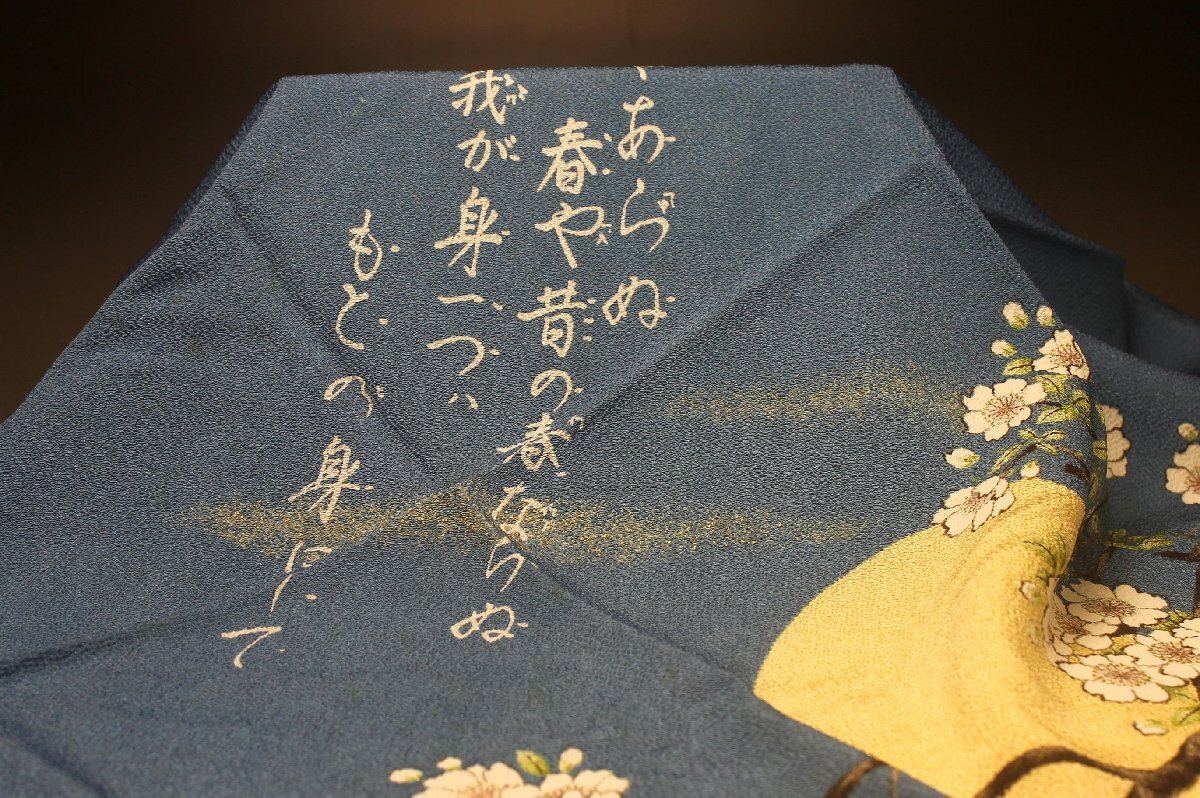 あらぬ
春や昔の春ならぬ
我が身一つハ
もとの身にして